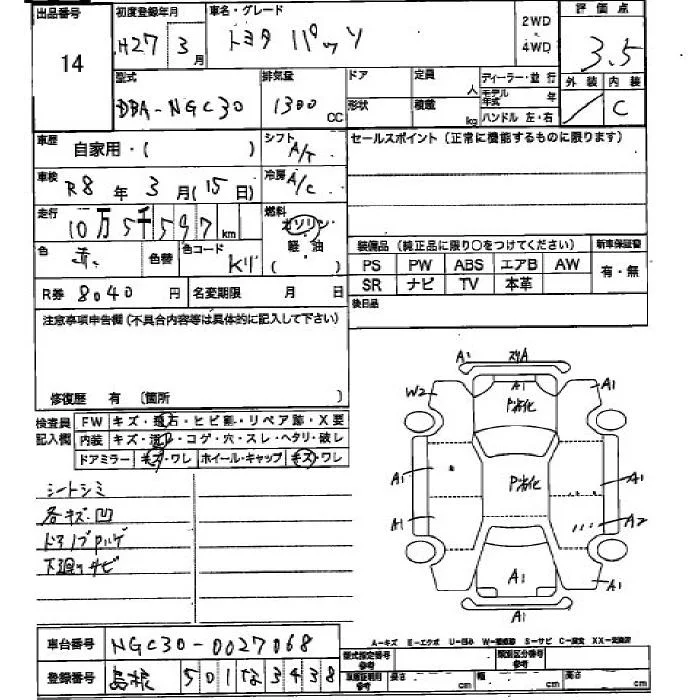 出品番号 初度登録年月 車名・グレード 2WD 4WD 評価点
14 H27年 3月 トヨタ パッソ 3.5
型式 排気量 ドア 定員 人 ディーラー・並行 外装 内装
DBA-NGC30 1300 CC 形状 積載 kg モデル年式 年 ハンドル 左・右 C
車歴 自家用・( ) シフト A/T セールスポイント(正常に機能するものに限ります)
車検 R8年 3月(15日) 冷房 A/C
走行 10万5千597km 燃料 ガソリン 軽油 ( )
色 赤 色替 色コード K
装備品(純正品に限り○をつけてください) 新車保証書
PS PW ABS エアB AW 有・無
SR ナビ TV 本革
R券 8040円 名変期限 月 日 後日品
注意事項申告欄(不具合内容等は具体的に記入して下さい)
修復歴 有 〔箇所 〕
検査員記入欄 FW キズ・飛石・ヒビ割・リペア跡・X要
内装 キズ・汚れ・コゲ・穴・スレ・ヘタリ・破レ
ドアミラー キズ・ワレ ホイール・キャップ キズ・ワレ
シートシミ
各キズ・凹
ドアノブPハゲ
下廻りサビ
A1
A1
W2
A1
P劣化
A1
P劣化
A1
A1
A2
A1
A1
A1
A-キズ E-エクボ U-凹み W-補修跡 S-サビ C-腐食 XX-交換済
車台番号 NGC30-0027068
登録番号 島根 501 な 3438
型式指定番号 参考 類別区分番号 参考
車庫証明用 参考 長さ cm 幅 cm 高さ cm